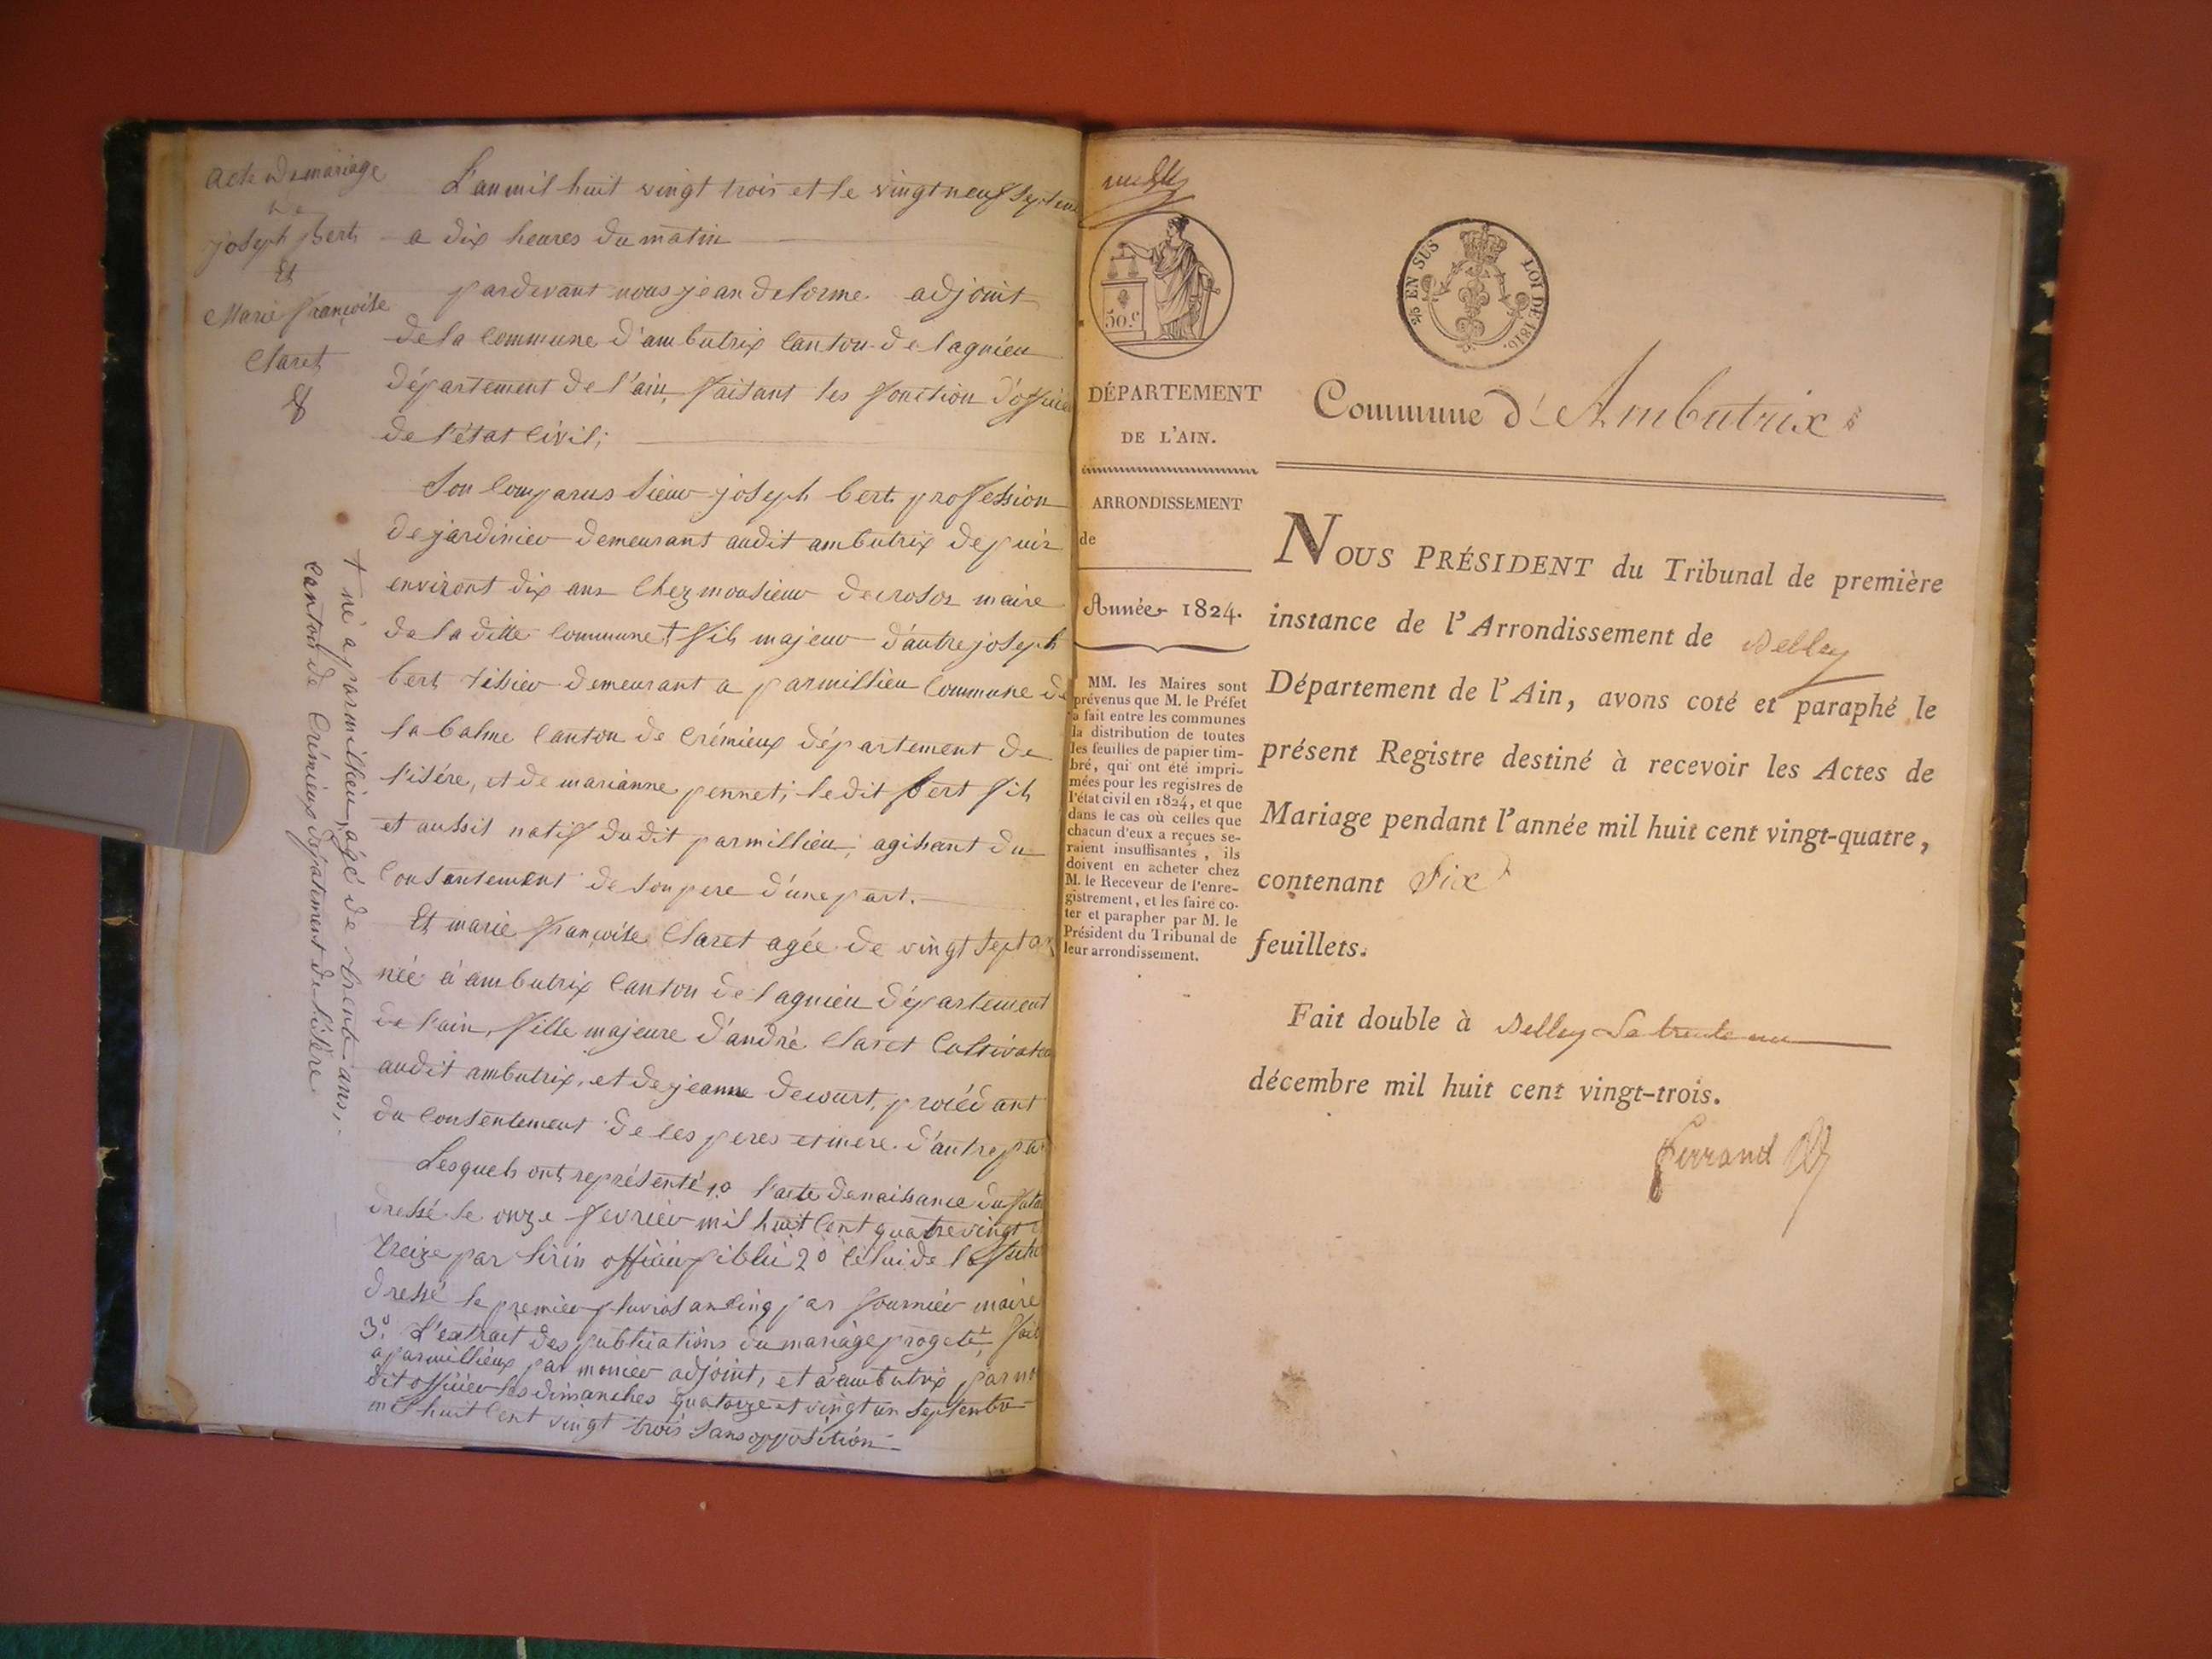 acte de mariage
de
joseph bert
Et
Marie françoise
Claret
L'an mil huit vingt trois et le vingt neuf septem
a dix heures du matin
pardevant nous jean delorme adjoint
de la commune d'ambutrix canton de lagnieu
département de l'ain, faisant les fonction d'officie
de l'état civil;
Son comparus sieur joseph bert profession
de jardinier demeurant audit ambutrix depuis
environt dix ans chez monsieur decrosos maire
de la ditte commune † fils majeur d'autre joseph
bert tissier demeurant a parmillieu commune de
la balme canton de crémieux département de
l'isére, et de marianne pennet; ledit bert fils
et aussit natif dudit parmillieu; agissant du
consentement de son pere d'une part.
Et marie françoise Claret agée de vingt sept an
née à ambutrix canton de lagnieu département
de l'ain, fille majeure d'andré Claret Cultivateu
audit ambutrix, et de jeanne decourt, procédant
du consentement de ses peres et mere d'autre par
Lesquels ont représenté 1º l'acte de naissance du futu
dressé le onze fevrier mil huit cent quatre vingt
treize par sirin officier piblic 2º celui de la futu
dressé le premier pluvios an cinq par fournier maire
3º. L'extrait des publications du mariage progeté, fait
a parmillieux par monier adjoint, et à ambutrix par no
dit officier les dimanches quatorze et vingt un septembre
mil huit cent vingt trois sans opposition
† né a parmillieu, agé de trente ans,
canton de Crémieux depatement de l'isère
50.c
2/5 EN SUS LOI DE 1816.
DÉPARTEMENT
DE L'AIN.
ARRONDISSEMENT
de
Année 1824.
MM. les Maires sont
prévenus que M. le Préfet
a fait entre les communes
la distribution de toutes
les feuilles de papier tim-
bré, qui ont été impri-
mées pour les registres de
l'état civil en 1824, et que
dans le cas où celles que
chacun d'eux a reçues se-
raient insuffisantes, ils
doivent en acheter chez
M. le Receveur de l'enre-
gistrement, et les faire co-
ter et parapher par M. le
Président du Tribunal de
leur arrondissement.
Commune d'Ambutrix
NOUS PRÉSIDENT du Tribunal de première
instance de l'Arrondissement de Belley
Département de l'Ain, avons coté et paraphé le
présent Registre destiné à recevoir les Actes de
Mariage pendant l'année mil huit cent vingt-quatre,
contenant Six
feuillets.
Fait double à Belley Le trente un
décembre mil huit cent vingt-trois.
Ferrand